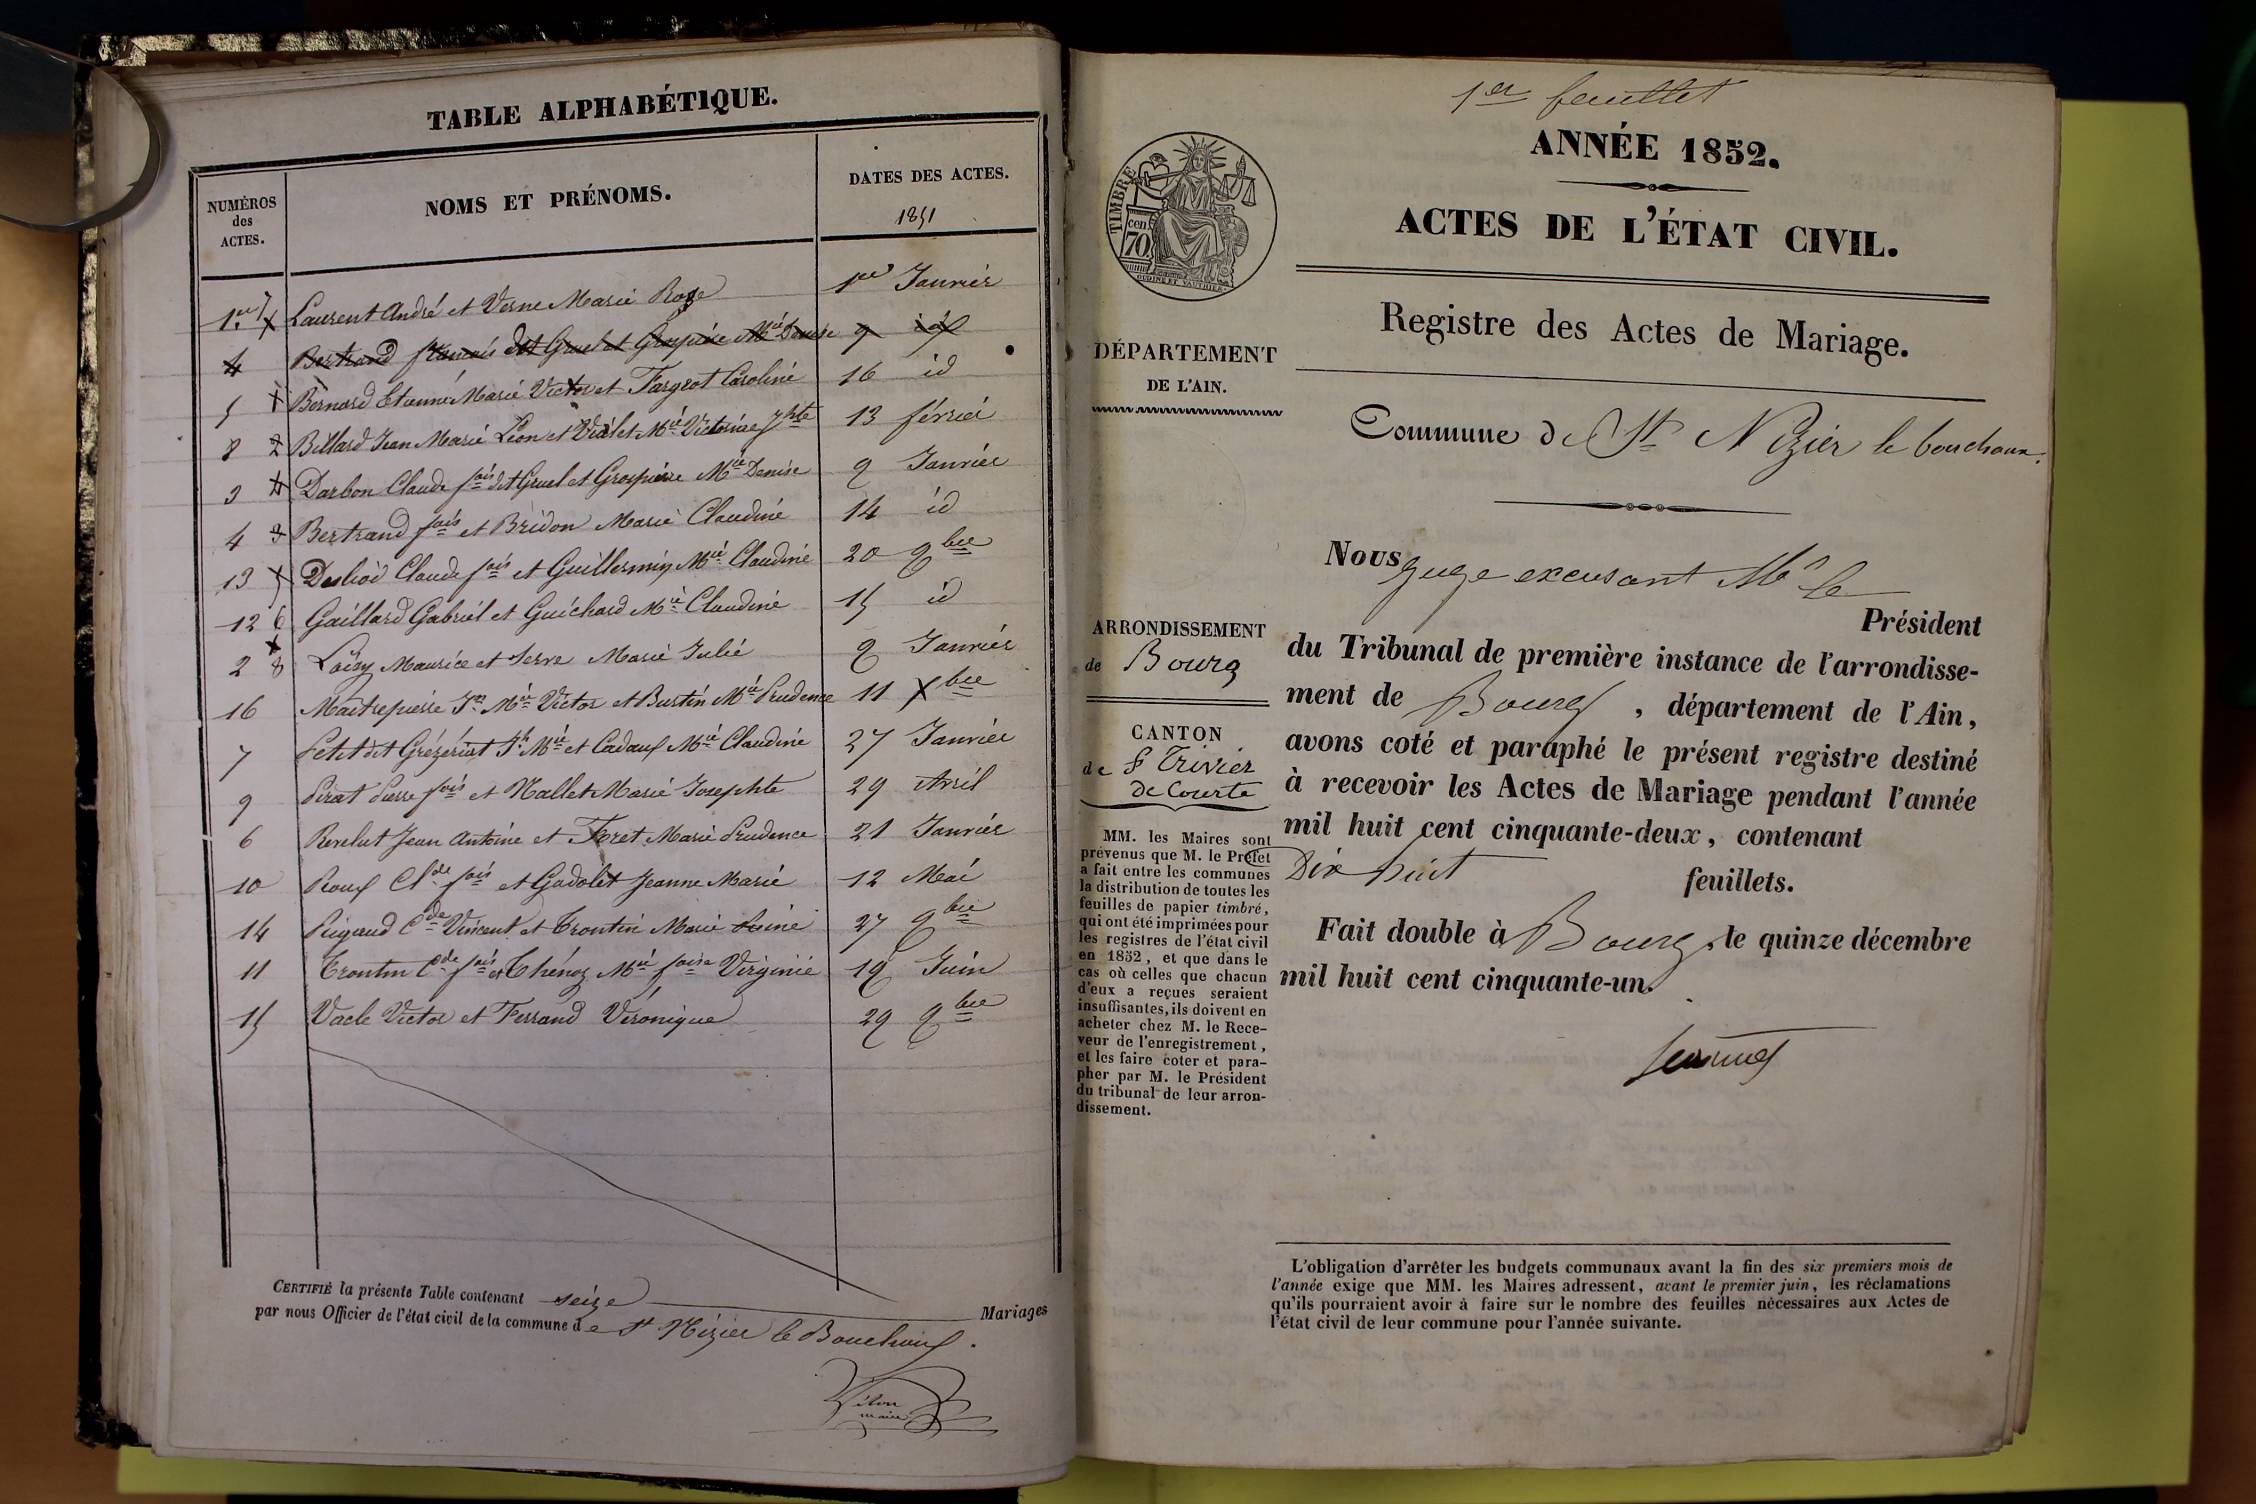 TABLE ALPHABÉTIQUE.
NUMÉROS
des
ACTES.
NOMS ET PRÉNOMS.
DATES DES ACTES.
1851
1er 7 Laurent André et Verne Marie Rose 1er Janvier
4 Bertrand françois dit Gruel et Grospierre Mie Denise 9 id
5 1 Bernard Etienné Marie Victor et Fargeot Caroliné 16 id
8 2 Billard Jean Marié Léon et Vialet Mié Victorine Jphte 13 février
3 4 Darbon Claude fois dit Gruel et Grospierre Mie Denise 9 Janvier
4 3 Bertrand fois et Bridon Marie Claudiné 14 id
13 5 Desbois Claude fois et Guillermin Mié Claudine 20 9bre
12 6 Gaillard Gabriel et Guichard Mie Claudiné 15 id
2 8 Loisy Maurice et Serve Marie Julié 9 Janvier
16 Maitrepierre Jn Mie Victor et Burtin Mie Prudence 11 Xbre
7 Petit dit Grézériat Jh Mie et Cadaux Mié Claudine 27 Janvier
9 Pirat Pierre fois et Mallet Marie Josephte 29 Avril
6 Revelut Jean Antoine et Foret Marie Prudence 21 Janvier
10 Roux Clde fois et Gadolet Jeanne Marie 12 Mai
14 Rigaud Cde Vincent et Trontin Marie 27 9bre
11 Trontin Cde fois et Thénoz Mié foise Virginié 19 Juin
15 Vacle Victor et Ferrand Véronique 29 9bre
CERTIFIÉ la présente Table contenant seize Mariages
par nous Officier de l'état civil de la commune de St Nizier le Bouchoux.
maire
1er feuillet
ANNÉE 1852.
ACTES DE L'ÉTAT CIVIL.
Registre des Actes de Mariage.
Commune de St Nizier le bouchoux.
Nous juge excusant Mr le
Président
du Tribunal de première instance de l'arrondisse-
ment de Bourg, département de l'Ain,
avons coté et paraphé le présent registre destiné
à recevoir les Actes de Mariage pendant l'année
mil huit cent cinquante-deux, contenant
Dix huit feuillets.
Fait double à Bourg, le quinze décembre
mil huit cent cinquante-un.
TIMBRE
cen.
70.
OUDINÉ ET VAUTHIER.
DÉPARTEMENT
DE L'AIN.
ARRONDISSEMENT
de Bourg
CANTON
de St Trivier
de Courte
MM. les Maires sont
prévenus que M. le Préfet
a fait entre les communes
la distribution de toutes les
feuilles de papier timbré,
qui ont été imprimées pour
les registres de l'état civil
en 1852, et que dans le
cas où celles que chacun
d'eux a reçues seraient
insuffisantes, ils doivent en
acheter chez M. le Rece-
veur de l'enregistrement,
et les faire coter et para-
pher par M. le Président
du tribunal de leur arron-
dissement.
L'obligation d'arrêter les budgets communaux avant la fin des six premiers mois de
l'année exige que MM. les Maires adressent, avant le premier juin, les réclamations
qu'ils pourraient avoir à faire sur le nombre des feuilles nécessaires aux Actes de
l'état civil de leur commune pour l'année suivante.